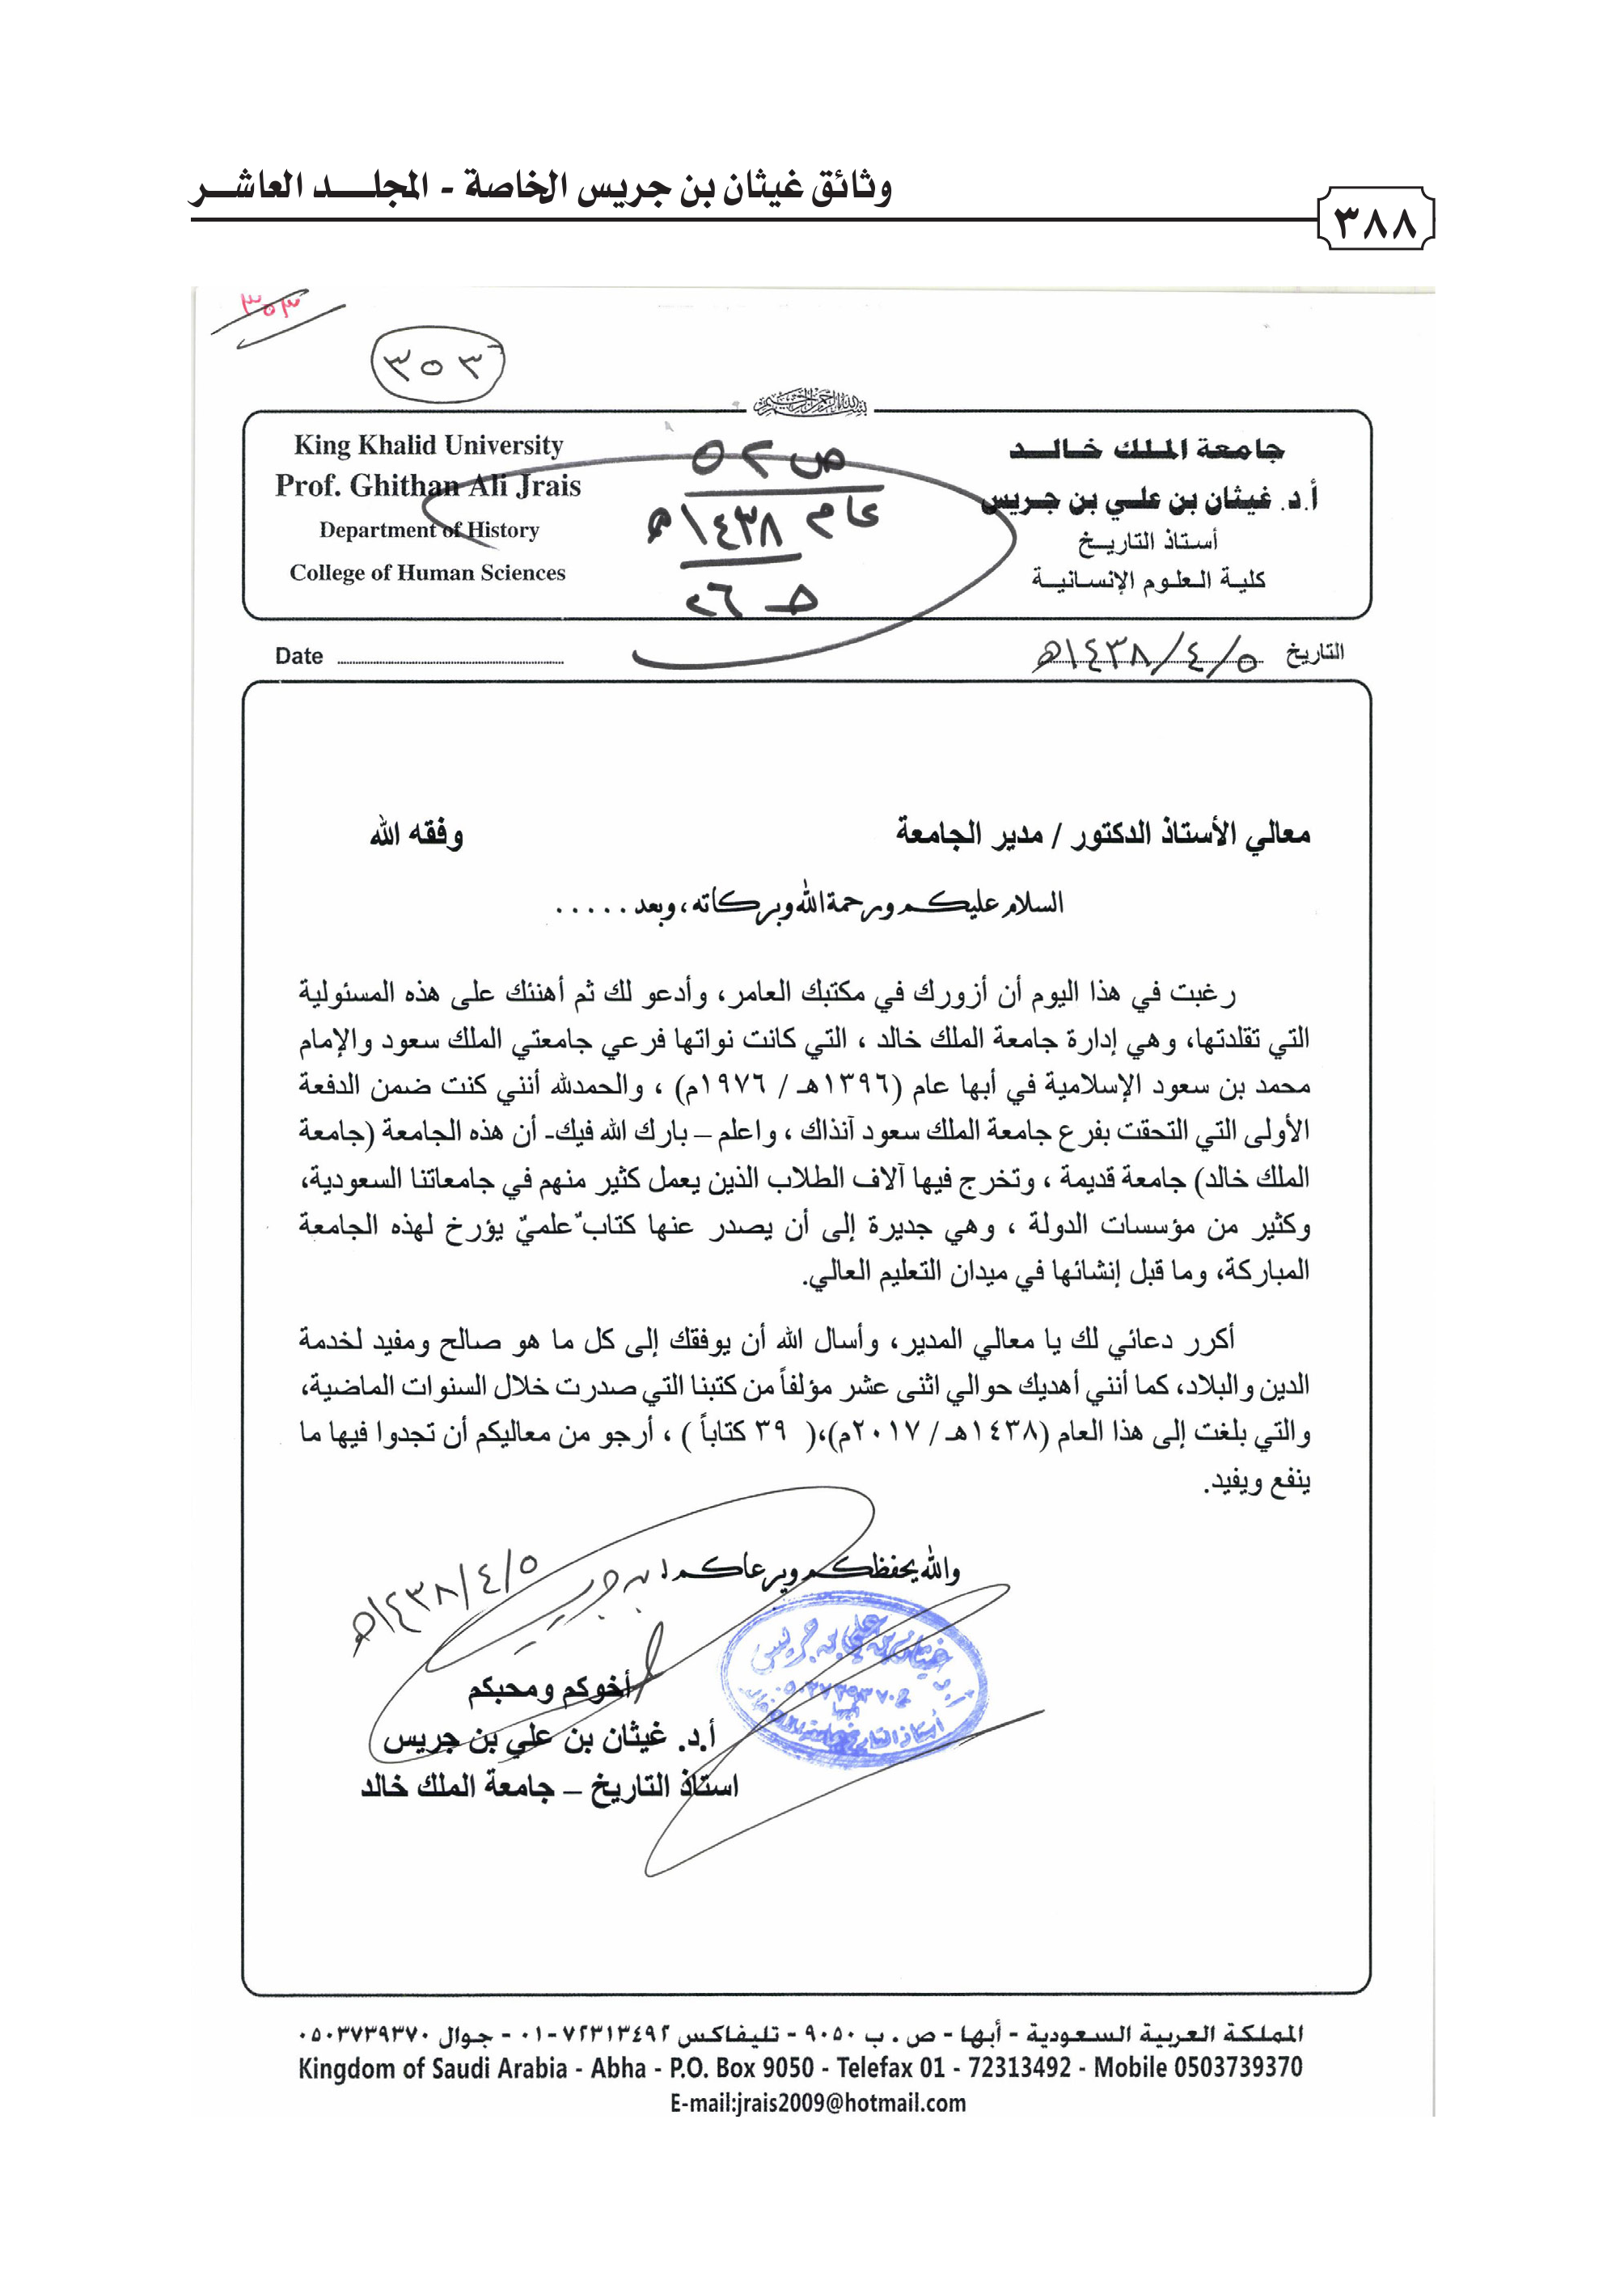 وثائق غيثان بن جريس الخاصة - المجلـــد العاشـــر
٣٨٨
٣٥٣
٣٥٣
بسم الله الرحمن الرحيم
جامعة الملك خالد
أ.د. غيثان بن علي بن جريس
أستاذ التاريخ
كلية العلوم الإنسانية
ص ٥٢
عام ١٤٣٨هـ
King Khalid University
Prof. Ghithan Ali Jrais
Department of History
College of Human Sciences
التاريخ ١٤٣٨/٤/٥هـ
Date
معالي الأستاذ الدكتور / مدير الجامعة وفقه الله
السلام عليكم ورحمة الله وبركاته، وبعد .....
رغبت في هذا اليوم أن أزورك في مكتبك العامر، وأدعو لك ثم أهنئك على هذه المسئولية
التي تقلدتها، وهي إدارة جامعة الملك خالد ، التي كانت نواتها فرعي جامعتي الملك سعود والإمام
محمد بن سعود الإسلامية في أبها عام (١٣٩٦هـ / ١٩٧٦م) ، والحمدلله أنني كنت ضمن الدفعة
الأولى التي التحقت بفرع جامعة الملك سعود آنذاك ، واعلم – بارك الله فيك- أن هذه الجامعة (جامعة
الملك خالد) جامعة قديمة ، وتخرج فيها آلاف الطلاب الذين يعمل كثير منهم في جامعاتنا السعودية،
وكثير من مؤسسات الدولة ، وهي جديرة إلى أن يصدر عنها كتابٌ علميٌ يؤرخ لهذه الجامعة
المباركة، وما قبل إنشائها في ميدان التعليم العالي.
أكرر دعائي لك يا معالي المدير، وأسال الله أن يوفقك إلى كل ما هو صالح ومفيد لخدمة
الدين والبلاد، كما أنني أهديك حوالي اثنى عشر مؤلفاً من كتبنا التي صدرت خلال السنوات الماضية،
والتي بلغت إلى هذا العام (١٤٣٨هـ / ٢٠١٧م)،( ٣٩ كتاباً ) ، أرجو من معاليكم أن تجدوا فيها ما
ينفع ويفيد.
والله يحفظكم ويرعاكم،
بن جريس
١٤٣٨/٤/٥هـ
أخوكم ومحبكم
أ.د. غيثان بن علي بن جريس
استاذ التاريخ – جامعة الملك خالد
أ.د. غيثان بن علي بن جريس
المملكة العربية السعودية - أبها - ص . ب ٩٠٥٠ - تليفاكس ٧٢٣١٣٤٩٢-٠١ - جوال ٠٥٠٣٧٣٩٣٧٠
Kingdom of Saudi Arabia - Abha - P.O. Box 9050 - Telefax 01 - 72313492 - Mobile 0503739370
E-mail:jrais2009@hotmail.com